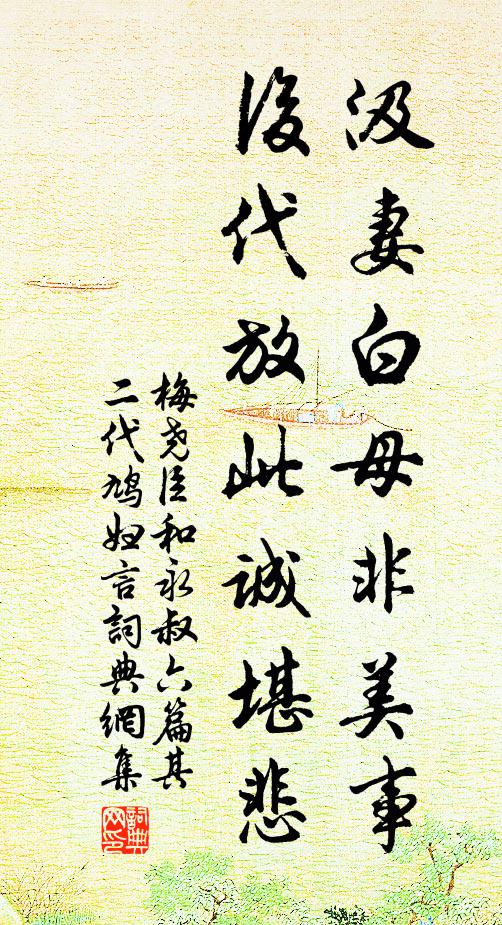 汲妻白母非美事
後代放此誠堪悲
梅堯臣和永叔六篇其
二代鳩婦言詞典網集
詞典
网印